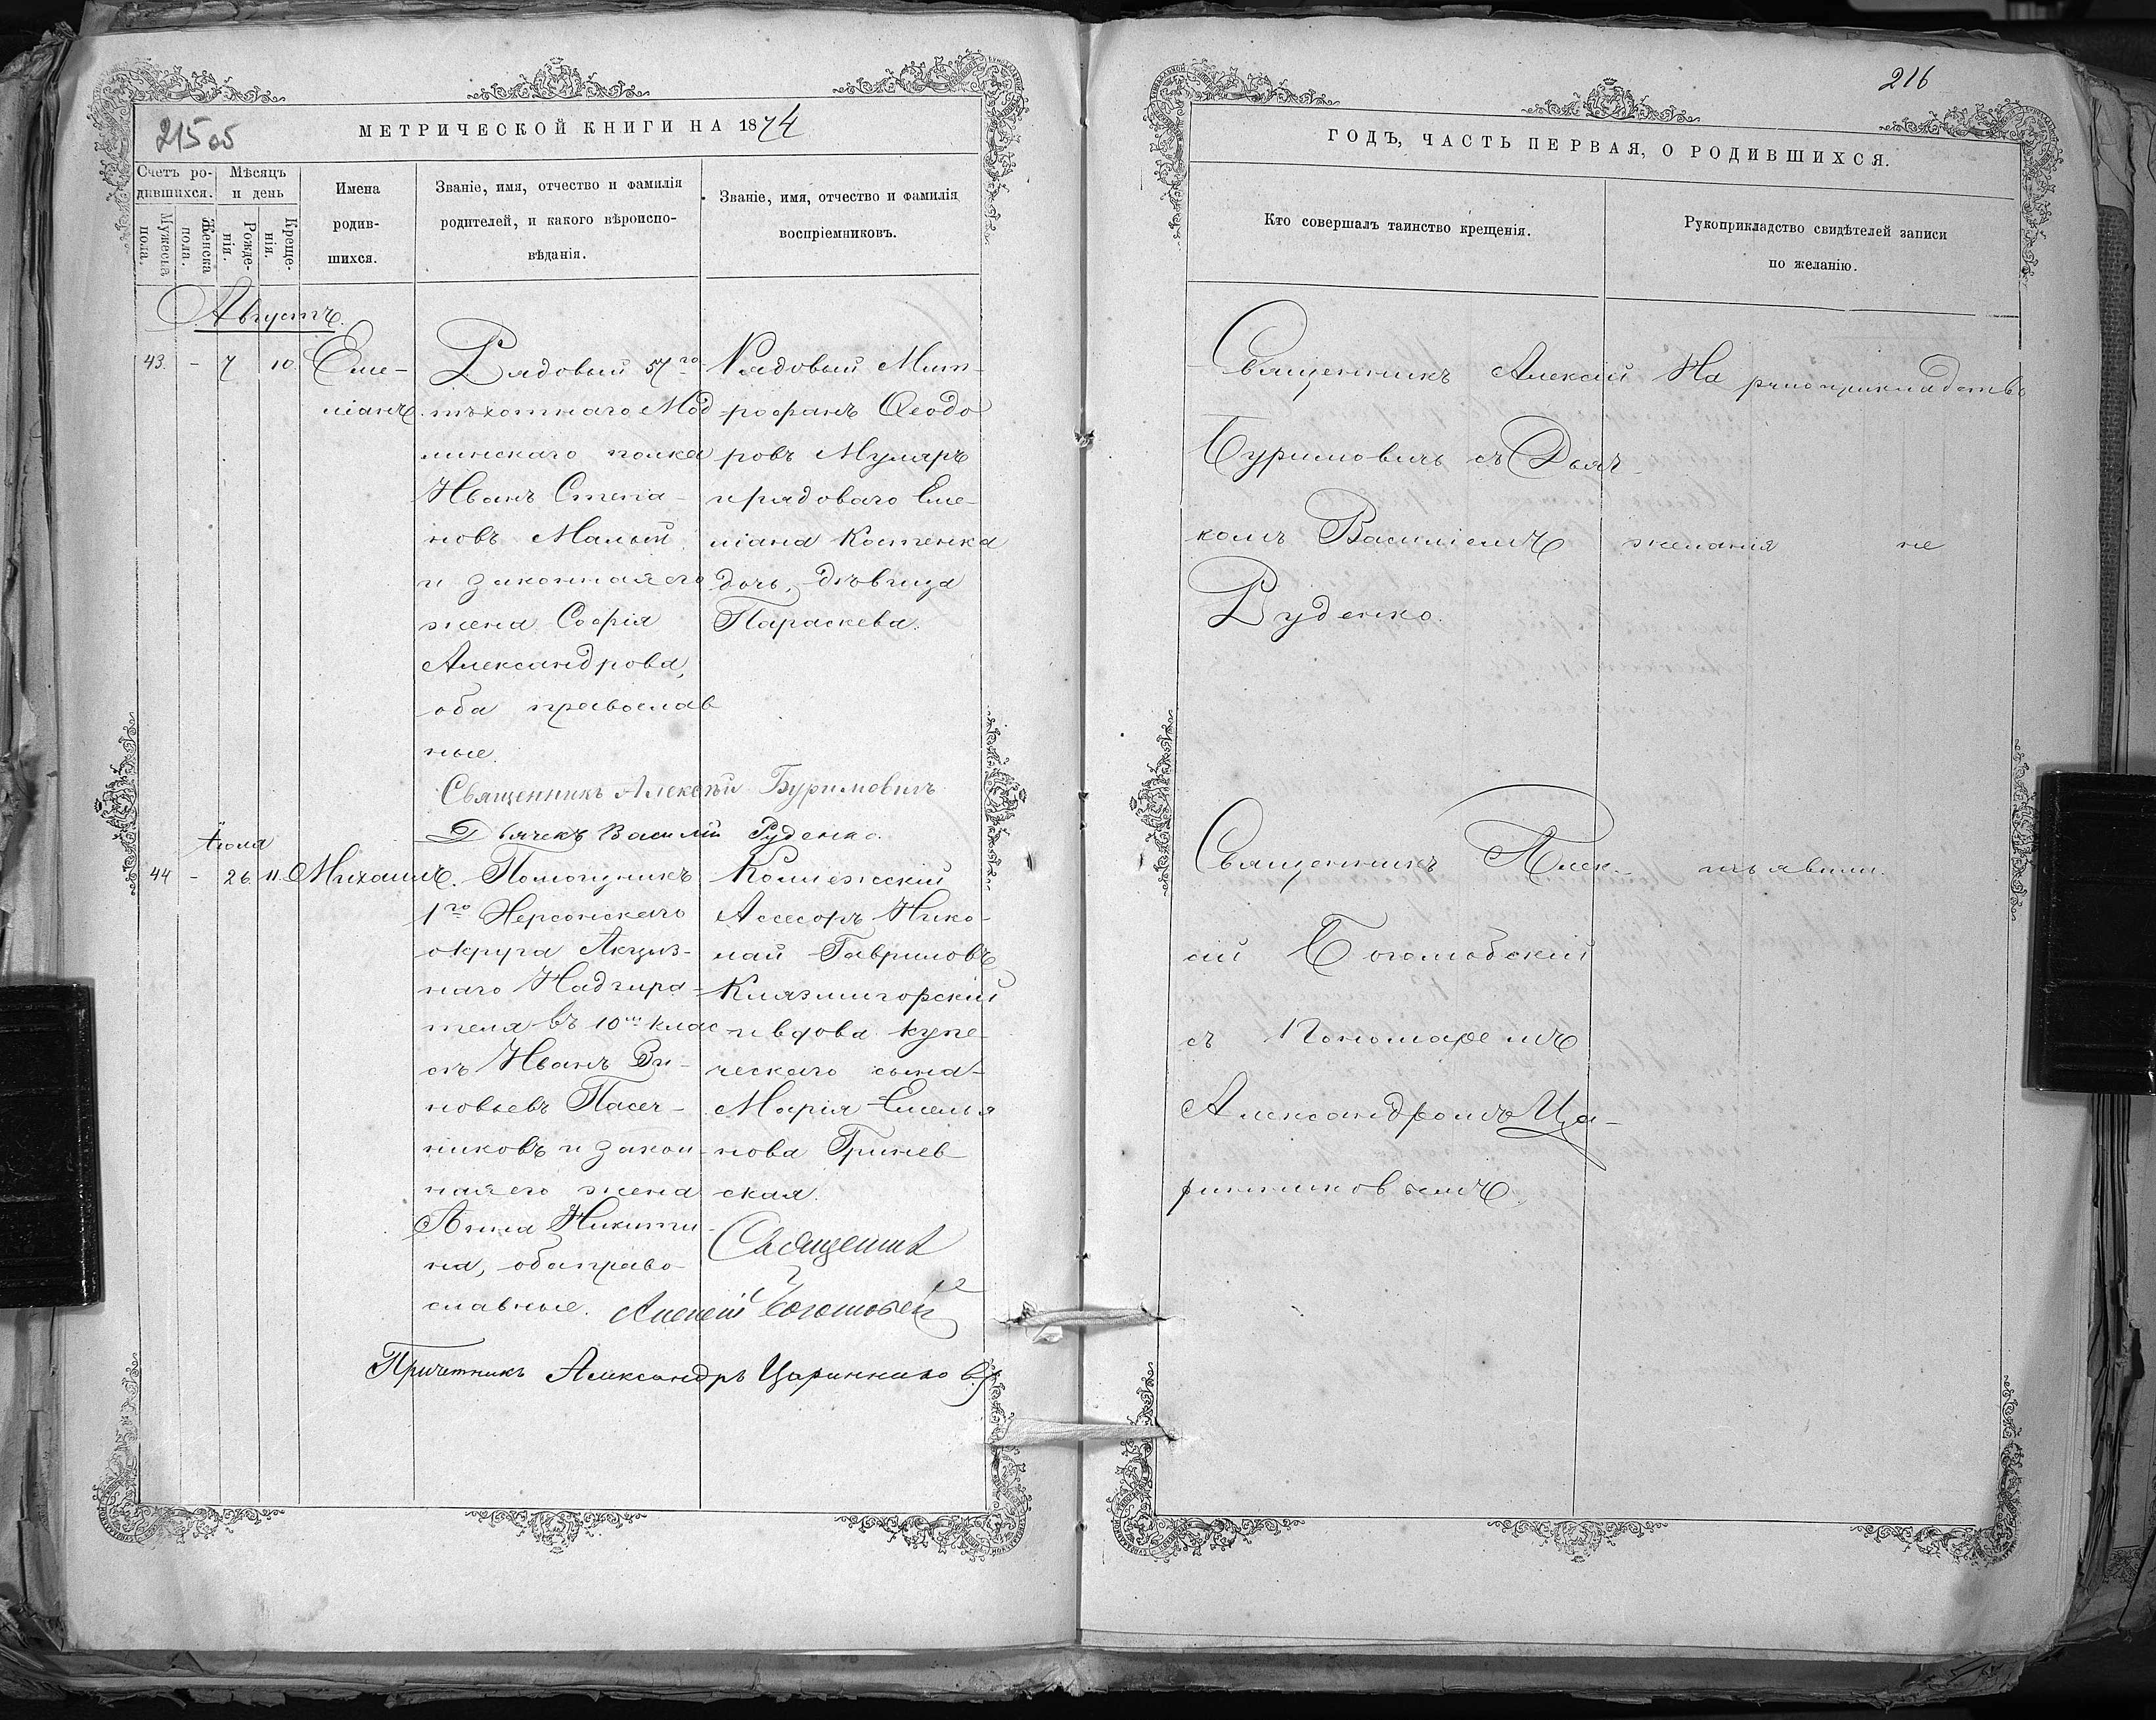 215 об
МЕТРИЧЕСКОЙ КНИГИ НА 1874
Счетъ ро-
дившихся.
Мѣсяцъ
и день
Мужеска
пола.
Женска
пола.
Рожде-
нія.
Креще-
нія.
Имена
родив-
шихся.
Званіе, имя, отчество и фамилія
родителей, и какого вѣроиспо-
вѣданія.
Званіе, имя, отчество и фамилія
воспріемниковъ.
Августъ.
43. - 7 10.
Еми-
ліанъ.
Рядовый 57го
пѣхотнаго Мод
линскаго полка
Иванъ Степа-
новъ Малый
и законная его
жена Софія
Александрова,
оба православ
ные.
Рядовый Мит-
рофанъ Ѳеодо
ровъ Муляръ
и рядоваго Еме-
ліана Костенка
дочь, дѣвица
Параскева.
Священникъ Алексѣй Буримовичъ
Дьячекъ Василій Руденко.
Іюля
44 - 26. 11. Михаилъ.
Помощникъ
1го Херсонскаго
округа Акциз-
наго Надзира-
теля въ 10м клас
сѣ Иванъ Зи-
новьевъ Пасеч-
никовъ и закон-
ная его жена
Анна Никити
на, оба право-
славные.
Коллежскій
Асесоръ Нико-
лай Гавриловъ
Клязмигорскій
и вдова купе
ческаго сына-
Марія Емелья
нова Гринев-
ская.
Священникъ
Алексій Боголюбскій
Причетникъ Александръ Царинниковъ
216
ГОДЪ, ЧАСТЬ ПЕРВАЯ, О РОДИВШИХСЯ.
Кто совершалъ таинство крещенія.
Рукоприкладство свидѣтелей записи
по желанію.
Священникъ Алексій
Буримовичъ съ Дьяч-
комъ Василіемъ
Руденко.
На рукоприкладство
желанія не
Священникъ Алек-
сій Боголюбскій
съ Пономаремъ
Александромъ Ца-
ринниковымъ.
изъявили.